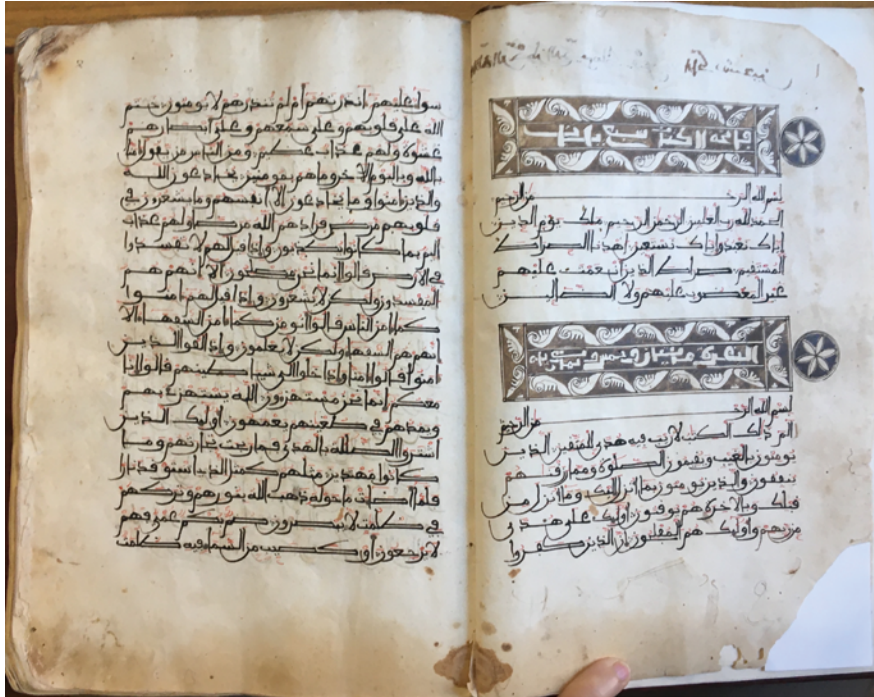 فاتحة الكتب سبع ايات
بسم الله الرحمن الرحيم
الحمد لله رب العلمين الرحمن الرحيم ملك يوم الدين
اياك نعبد واياك نستعين اهدنا الصراط
المستقيم صراط الذين انعمت عليهم
غير المغضوب عليهم ولا الضالين
البقرة مايتان وخمس وثمانون اية
بسم الله الرحمن الرحيم
الم ذلك الكتب لا ريب فيه هدى للمتقين الذين
يومنون بالغيب ويقيمون الصلوة ومما رزقنهم
ينفقون والذين يومنون بما انزل اليك وما انزل من
قبلك وبالاخرة هم يوقنون اوليك على هدى
من ربهم واوليك هم المفلحون ان الذين كفروا
سوا عليهم انذرتهم ام لم تنذرهم لا يومنون ختم
الله على قلوبهم وعلى سمعهم وعلى ابصرهم
غشوة ولهم عذاب عظيم ومن الناس من يقول امنا
بالله وباليوم الاخر وما هم بمومنين يخدعون الله
والذين امنوا وما يخدعون الا انفسهم وما يشعرون في
قلوبهم مرض فزادهم الله مرضا ولهم عذاب
اليم بما كانوا يكذبون واذا قيل لهم لا تفسدوا
في الارض قالوا انما نحن مصلحون الا انهم هم
المفسدون ولكن لا يشعرون واذا قيل لهم امنوا
كما امن الناس قالوا انومن كما امن السفها الا
انهم هم السفها ولكن لا يعلمون واذا لقوا الذين
امنوا قالوا امنا واذا خلوا الى شيطينهم قالوا انا
معكم انما نحن مستهزون الله يستهزي بهم
ويمدهم في طغينهم يعمهون اوليك الذين
اشتروا الضللة بالهدى فما ربحت تجرتهم وما
كانوا مهتدين مثلهم كمثل الذي استوقد نارا
فلما اضات ما حوله ذهب الله بنورهم وتركهم
في ظلمت لا يبصرون صم بكم عمي فهم
لا يرجعون او كصيب من السما فيه ظلمت